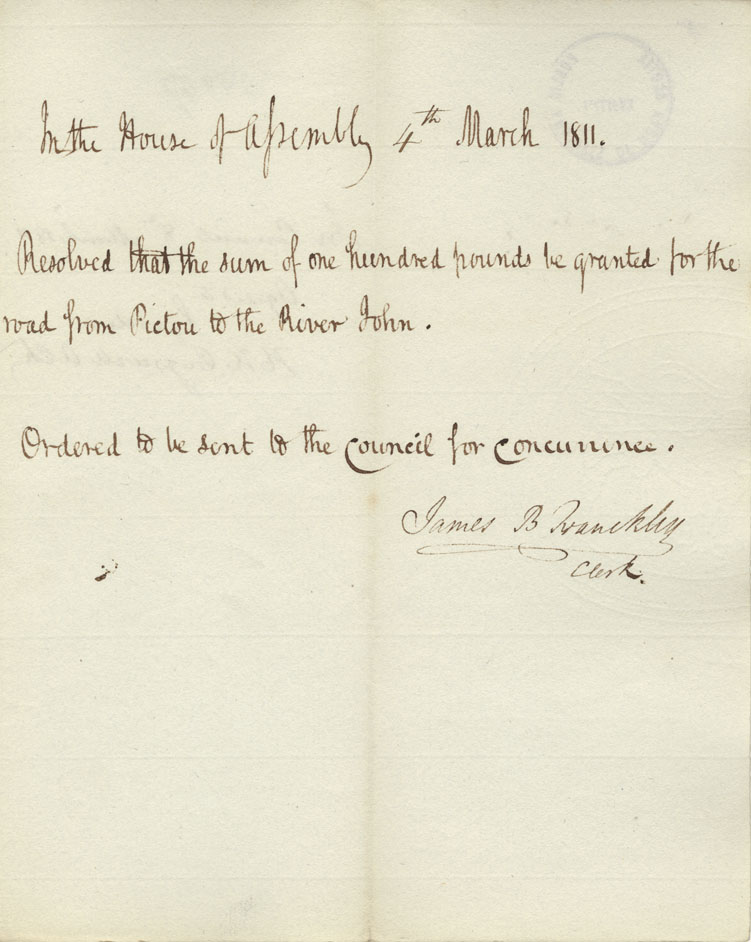 In the House of Assembly 4th March 1811.
Resolved that the sum of one hundred pounds be granted for the
road from Pictou to the River John.
Ordered to be sent to the Council for concurrence.
James B Franckly
Clerk.